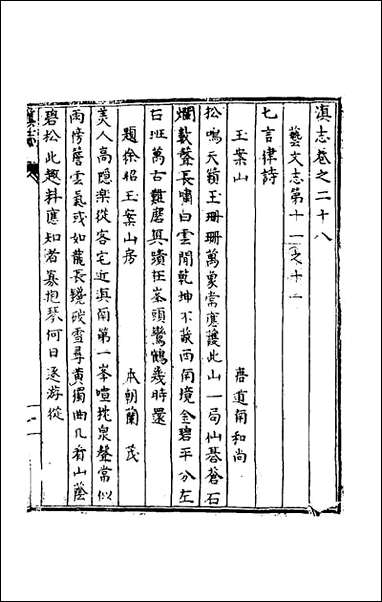 滇志卷之二十八
藝文志第十一之十一
七言律詩
玉案山　唐道南和尚
松鳴天籟玉珊珊萬象常應護此山一局仙棊蒼石
爛數聲長嘯白雲閒乾坤不蔽西南境金碧平分左
右班萬古難磨眞蹟在峯頭鸞鶴幾時還
題徐招玉案山房　本朝蘭茂
美人高隱樂從容宅近滇南第一峯喧挩泉聲常似
雨傍簷雲氣或如龍長鑱破雪尋黃獨曲几看山蔭
碧松此趣料應知者寡抱琴何日逐游從